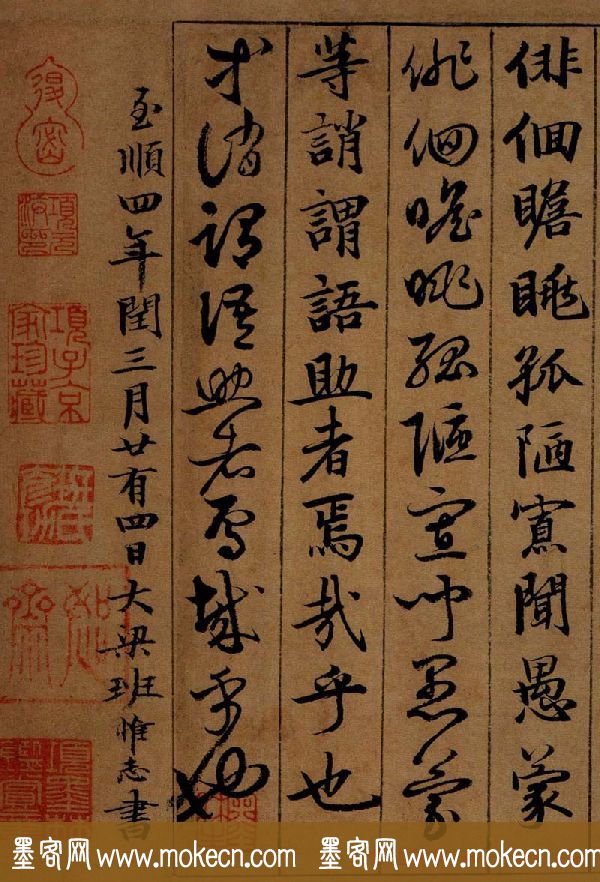 徘佪瞻眺孤陋寡聞愚蒙
徘佪瞻眺孤陋寡聞愚蒙
等誚謂語助者焉哉乎也
等誚謂語助者焉哉乎也
至順四年閏三月廿有四日大梁班惟志書
項子京家珍藏
墨客网 www.mokecn.com 墨客网 www.mokecn.com